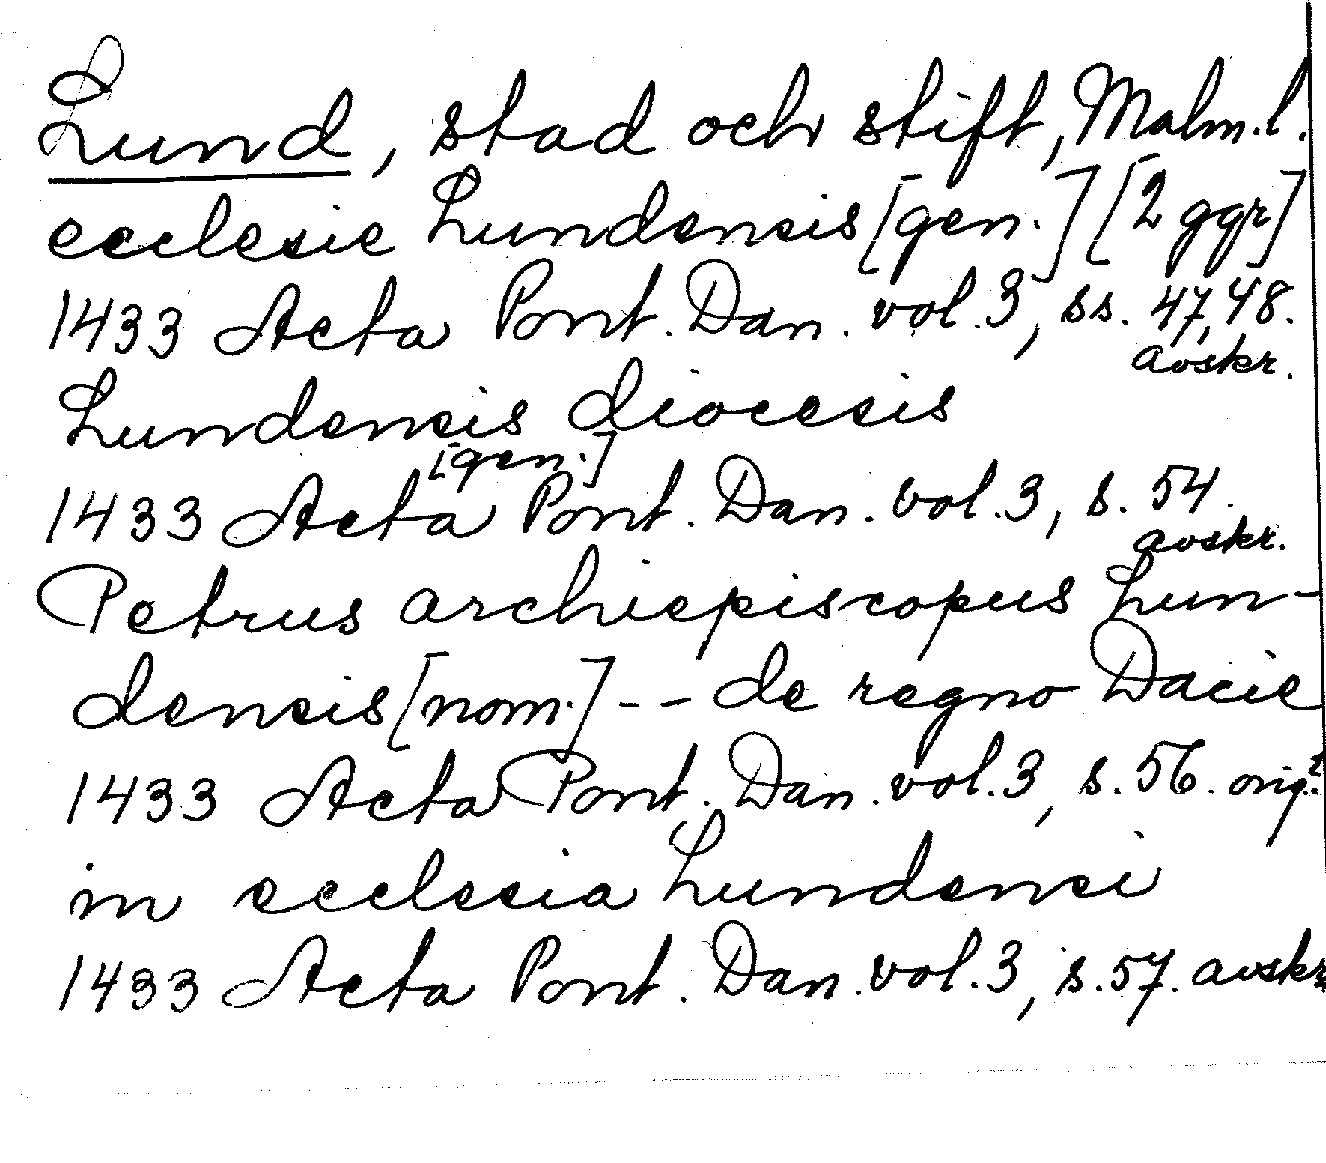 Lund, stad och stift, Malm.l.
ecclesie Lundensis [gen.] [2 ggr]
1433 Acta Pont. Dan. vol. 3, ss. 47, 48.
avskr.
Lundensis diocesis
[gen.]
1433 Acta Pont. Dan. vol. 3, s. 54.
avskr.
Petrus archiepiscopus Lun-
densis [nom.] -- de regno Dacie
1433 Acta Pont. Dan. vol. 3, s. 56. orig.?
in ecclesia Lundensi
1433 Acta Pont. Dan. vol. 3, s. 57. avskr.